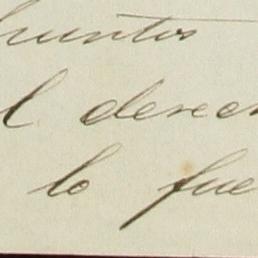 puntos
l derech
lo fue